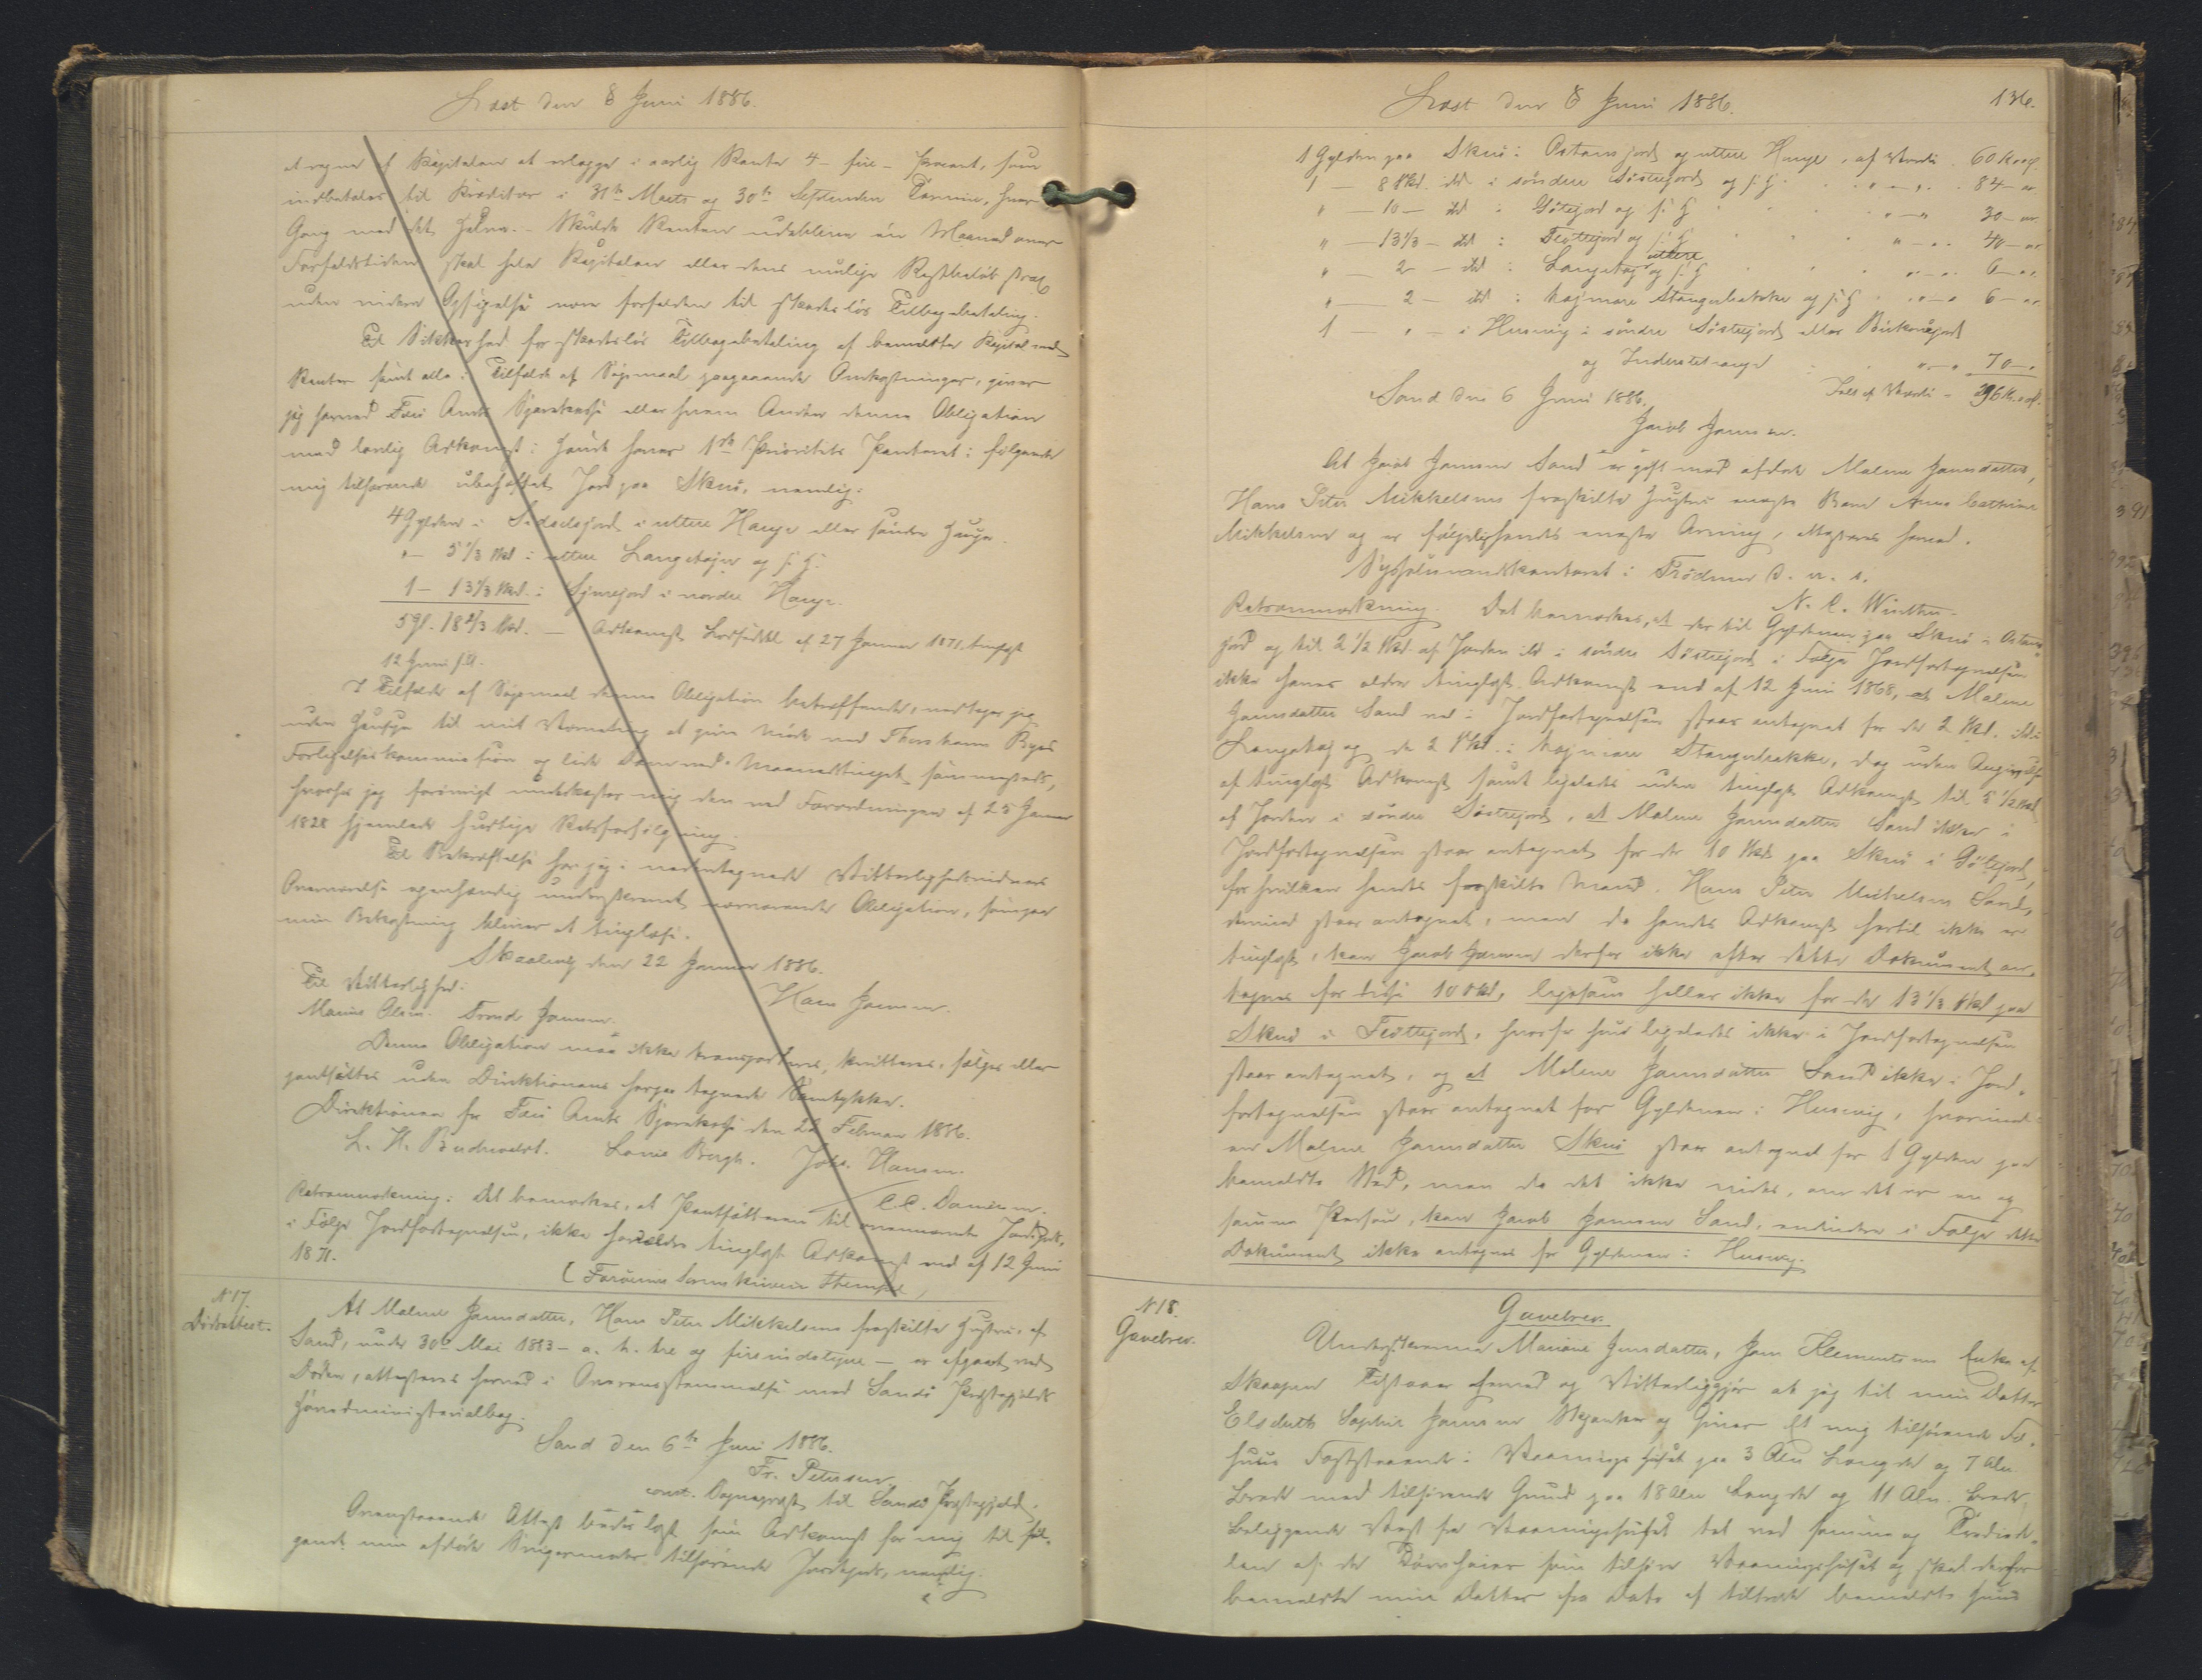 Læst den 8 Juni 1886.
at regne af Kapitalen at erlægge i aarlig Rente 4 - fire - Procent, som
indbetales til Kreditor i 31te Marts og 30te September Termin, hver
Gang med det Halve. Skulde Renten udeblive én Maaned over
Forfaldstiden skal hele Kapitalen eller dens mulige Restbeløb strax
uden videre Opsigelse være forfalden til skadesløs Tilbagebetaling.
Til Sikkerhed for skadesløs Tilbagebetaling af bemeldte Kapital med
Renter samt alle i Tilfælde af Søgsmaal paagaaende Omkostninger, giver
jeg herved Færø Amts Sparekasse eller hvem Anden denne Obligation
med lovlig Adkomst i Hænde haver 1ste Prioritets Panteret i følgende
mig tilhørende ubehæftet Jord paa Skuø, nemlig:
4 Gylden i Sedselsjord i uttere Hauge eller søndre Hauge.
" - 5 1/3 Skd i uttere Langetøjer og s. H.
1 - 13 1/3 Skd. i Hjnrejord i nordre Hauge.
5 Gl. 18 2/3 Skd. - Adkomst Lodseddel af 27 Januar 1871, tinglyst
12 Juni s. A.
I Tilfælde af Søgsmaal denne Obligation betræffende, vedtager jeg
uden Hensyn til mit Værneting at give Møde ved Thorshavns Byes
Forligelseskommission og lide Dom ved Maanedstinget sammesteds,
hvorhos jeg forøvrigt underkaster mig den ved Forordningen af 25 Januar
1828 hjemlede hurtige Retsforfølgning.
Til Bekræftelse har jeg i nedentegnede Vitterlighedsvidners
Overværelse egenhændig underskrevet nærværende Obligation, som paa
min Bekostning bliver at tinglæse.
Skaaling den 22 Januar 1886.
Til Vitterlighed: Hans Jensen.
Marius Olsen. Trond Jensen.
Denne Obligation maa ikke transporteres, kvitteres, sælges eller
pantsættes uden Direktionens herpaa tegnede Samtykke.
Direktionen for Færø Amts Sparekasse den 22 Februar 1886.
L. H. Buchwaldt. Louis Bergh. Johs. Hansen.
C. C. Danielsen.
Retsanmærkning: Det bemærkes, at Pantsætteren til ovennævnte Jordgods,
i Følge Jordfortegnelsen, ikke har ældre tinglyst Adkomst end af 12 Juni
1871.
(Færøernes Sorenskriveri Stempel)
N 17.
Dødsattest.
At Malene Jensdatter, Hans Peter Mikkelsens fraskilte Hustru, af
Sand, under 30te Mai 1883 - a. t. tre og firsindstyve - er afgaaet ved
Døden, attesteres herved i Overensstemmelse med Sandø Præstegjælds
Hovedministerialbog.
Sand den 6te Juni 1886.
Fr. Petersen
const. Sognepræst til Sandø Præstegjæld.
Ovenstaaende Attest bedes læst som Adkomst for mig til føl-
gende min afdøde Svigermoder tilhørende Jordgods, nemlig:
Læst den 8 Juni 1886.
136.
1 Gylden paa Skuø i Ostensjord og uttere Hauge, af Værdi 60 Kr. og
1 - 8 Skd. ibd i søndre Sostrejord og s. H. " - " 84 - "
" - 10 - ibd i Gøtejord og s. H. " - " 30 - "
" - 13 1/3 - ibd i Trøttejord og s. H. " - " 40 - "
" - 2 - ibd i Langetog uttere og s. H. " - " 6 - "
" - 2 - ibd i hojmare Stangubakke og s. H. " - " 6 - "
1 - " - i Husevig i søndre Sostrejord eller Buikonejord
og Inderstetraug " - " 70 - "
Tals af Værdi - 296 Kr. og
Sand den 6 Juni 1886.
Jacob Jensen.
At Jacob Jensen Sand er gift med afdøde Malene Jensdatters,
Hans Peter Mikkelsens fraskilte Hustrus eneste Barn Anne Cathrine
Mikkelsen og er følgelig hendes eneste Arving, attesteres herved.
Sysselmandskontoret i Trødum d. u. s.
N. C. Winther
Retsanmærkning. Det bemærkes, at der til Gyldenen paa Skuø i Ostens-
jord og til 2 1/2 Skd. af Jorden ibd i søndre Sostrejord i Følge Jordfortegnelsen
ikke haves ældre tinglyst Adkomst end af 12 Juni 1868, at Malene
Jensdatter Sand vel i Jordfortegnelsen staar antegnet for de 2 Skd. ibd i
Langetog og de 2 Skd. i hojmare Stangubakke, dog uden Angivelse
af tinglyst Adkomst samt ligeledes uden tinglyst Adkomst til 5 1/2 Skd
af Jorden i søndre Sostrejord, at Malene Jensdatter Sand ikke i
Jordfortegnelsen staar antegnet for de 10 Skd paa Skuø i Gøtejord,
for hvilken hendes fraskilte Mand, Hans Peter Mickelsen Sand,
derimod staar antegnet, men da hendes Adkomst hertil ikke er
tinglyst, kan Jacob Jensen derfor ikke efter dette Dokument an-
tegnes for disse 10 Skd, ligesom heller ikke for de 13 1/3 Skd paa
Skuø i Trøttejord, hvorfor hun ligeledes ikke i Jordfortegnelsen
staar antegnet, og at Malene Jensdatter Sand ikke i Jord-
fortegnelsen staar antegnet for Gyldenen i Husevig, hvorimod
en Malene Jensdatter Skuø staar antegnet for 1 Gylden paa
bemeldte Sted, men da det ikke vides, om det er en og
samme Person, kan Jacob Jensen Sand, endvidere i Følge dette
Dokument ikke antegnes for Gyldenen i Husevig.
N 18.
Gavebrev.
Gavebrev.
Underskrevne Mariane Jensdatter, Jens Klementsens Enke af
Skaapen Tilstaaer herved og Vitterliggjør at jeg til min Datter
Elsebeth Sophie Jensen Skjænker og Giver Et mig tilhørende Fæ-
huus Faststaaende i Vaaningshuset paa 3 Alen Længde og 7 Alen
Brede med tilhørende Grund paa 18 Alen Længde og 11 Alen Brede,
Beliggende Vest for Vaaningshuset tet ved samme og Tredie De-
len af de som tilhøre Vaaningshuset og skal derfor
bemeldte min Datter fra Dato af tiltræde bemeldte Huus